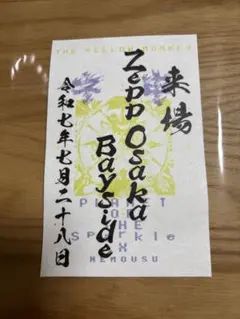 THE YELLOW MONKEY
来場
Zepp Osaka
Bayside
令和七年七月二十八日
PLANET
OF
THE
Sparkle
X
HEMOUSU